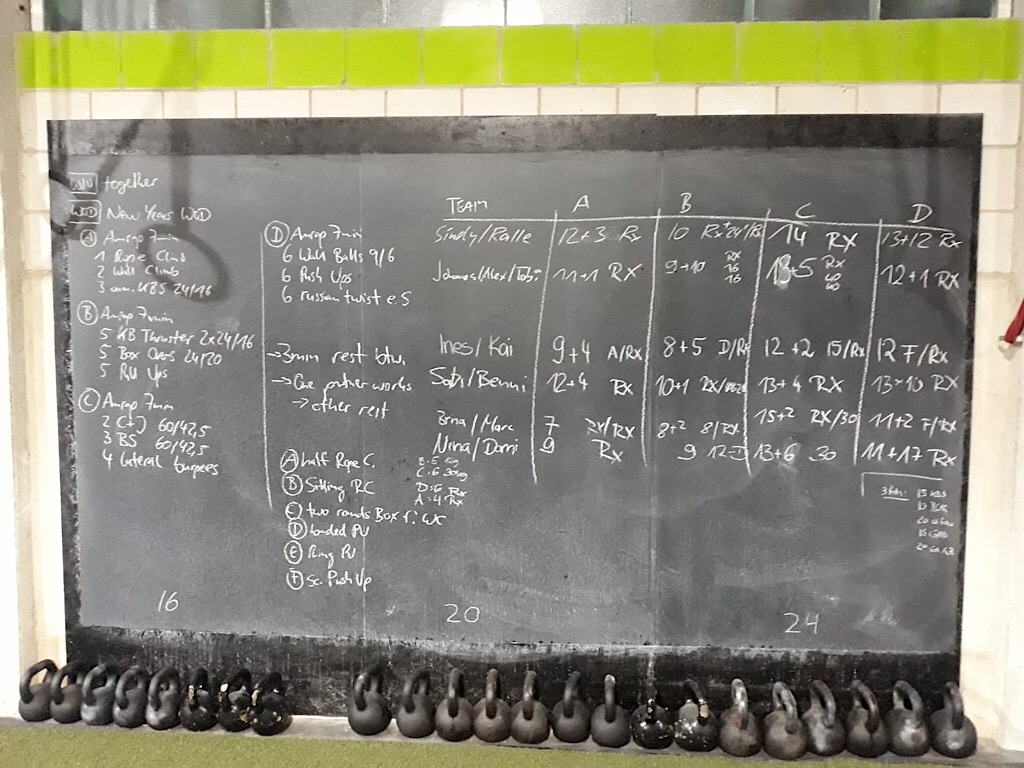 together
WOD New Years WOD
A Amrap 7min
1 Rope Climb
2 Wall Climb
3 am. KBS 24/16
B Amrap 7min
5 KB Thruster 2x24/16
5 Box Overs 24/20
5 Pull Ups
C Amrap 7min
2 C+J 60/42,5
3 BS 60/42,5
4 lateral burpees
D Amrap 7min
6 Wall Balls 9/6
6 Push Ups
6 russan twist e.S
→ 3min rest btw.
→ One partner works
→ other rest
A half Rope C.
B Sitting RC
C two rounds Box f. WC
D banded PU
E Ring PU
F sc. Push Up
TEAM A B C D
Sindy/Ralle 12+3 Rx 10 14 RX 13+12 Rx
11+1 RX 9+10 RX 16 16 +5 Rx 12+1 RX
Ines/Kai 9+4 A/RX 8+5 D/RX 12+2 15/RX 12 F/RX
/Benni 12+4 RX 10+1 13+4 RX 13+10 RX
/Marc 7 /RX 8+2 8/RX 15+2 RX/30 11+2 F/RX
Nina/Domi 9 Rx 9 13+6 30 11+17 RX
D=6 Rx
A=4 Rx
16 20 24